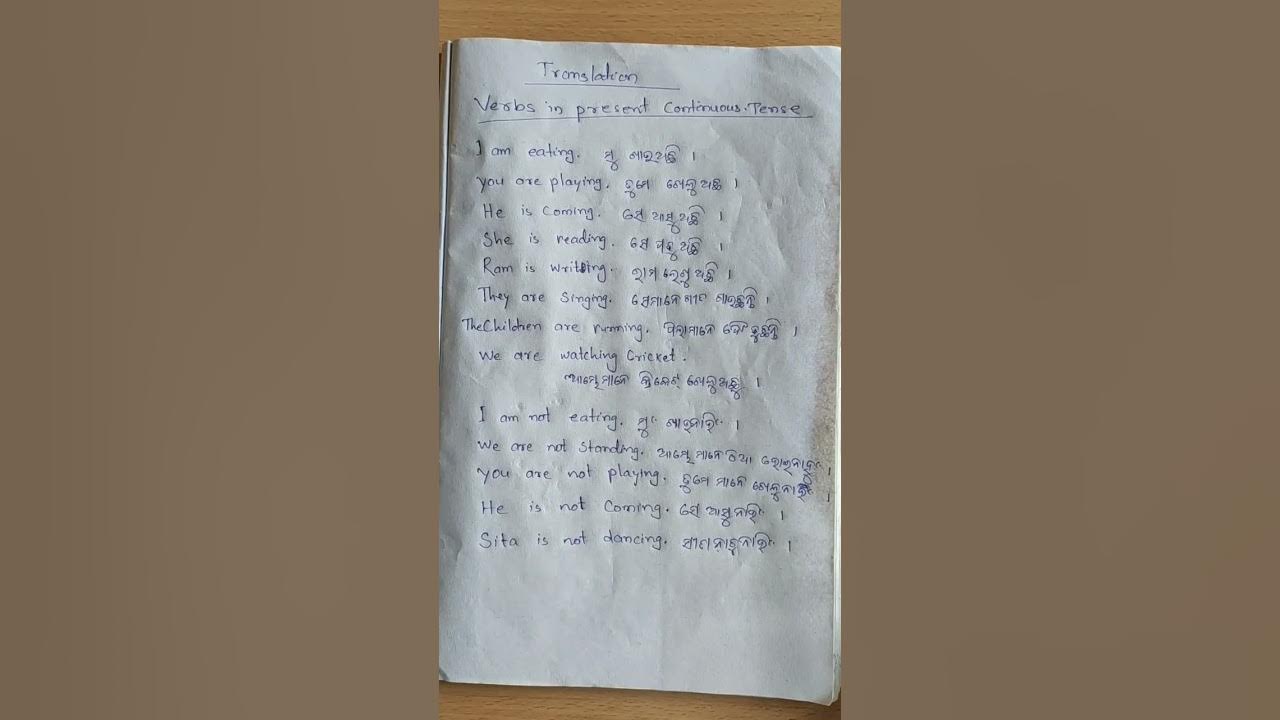 Translation
Verbs in present Continuous.Tense
I am eating. ମୁ ଖାଉଅଛି ।
you are playing. ତୁମେ ଖେଳୁଅଛ ।
He is Coming. ସେ ଆସୁଅଛି ।
She is reading. ସେ ପଢୁଅଛି ।
Ram is writing. ରାମ ଲେଖୁଅଛି ।
They are Singing. ସେମାନେ ଗୀତ ଗାଉଛନ୍ତି ।
The Children are running. ପିଲାମାନେ ଦୌଡୁଛନ୍ତି ।
We are watching Cricket.
ଆମ୍ଭେମାନେ କ୍ରିକେଟ୍ ଖେଳୁଅଛୁ ।
I am not eating. ମୁଁ ଖାଉନାହିଁ ।
We are not Standing. ଆମ୍ଭେମାନେ ଠିଆ ହୋଇନାହୁଁ ।
you are not playing. ତୁମେ ମାନେ ଖେଳୁନାହଁ ।
He is not Coming. ସେ ଆସୁନାହିଁ ।
Sita is not dancing. ସୀତା ନାଚୁନାହିଁ ।